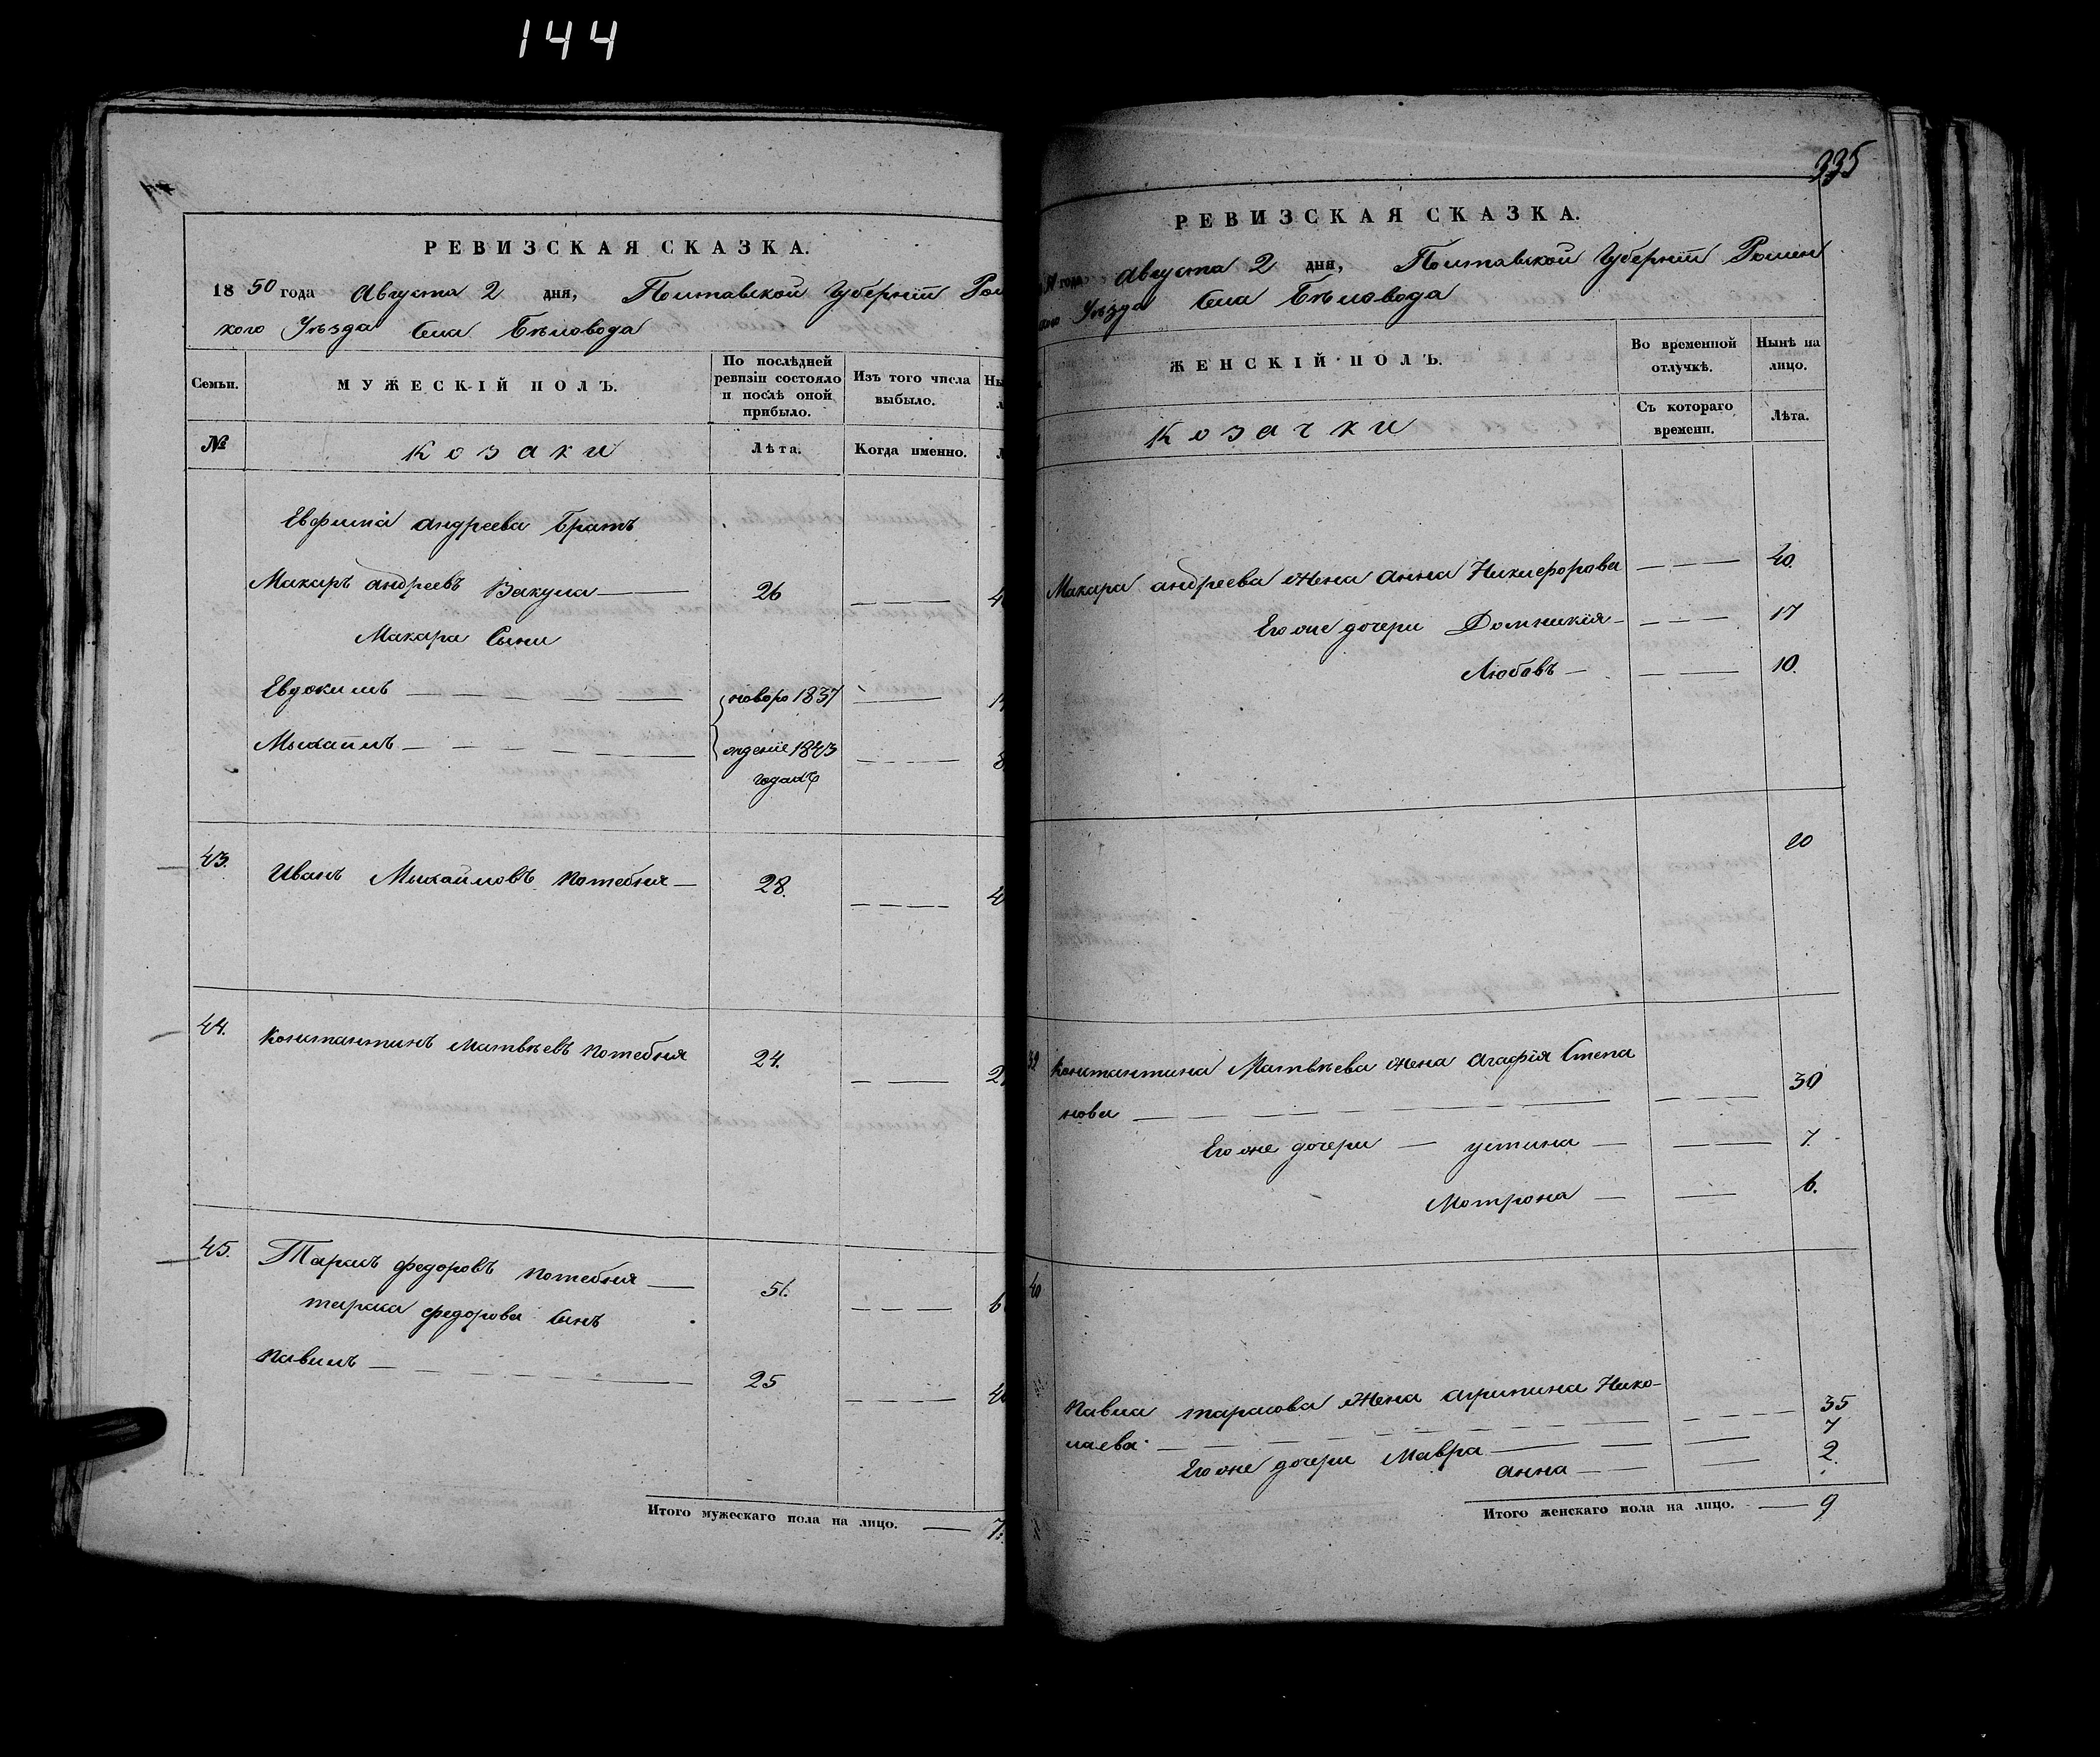 144
РЕВИЗСКАЯ СКАЗКА.
1850 года Августа 2 дня, Полтавской Губерніи Ром
кого Уѣзда Села Бѣловода
Семьи.
МУЖЕСКІЙ ПОЛЪ.
По послѣдней
ревизіи состояло
и послѣ оной
прибыло.
Изъ того числа
выбыло.
№
Козаки
Лѣта.
Когда именно.
Евфима Андреева Братъ
Макаръ Андреевъ Вакула 26
Макара Сыни
Евдокимъ новоро 1837
Михаилъ жденіе 1843
годахъ
43. Иванъ Михайловъ Потебня 28.
44. Константинъ Матвѣевъ Потебня 24.
45. Тарасъ Федоровъ Потебня 51.
Тараса Федорова Сынъ
Павилъ 25
Итого мужескаго пола на лицо. 7.
335
РЕВИЗСКАЯ СКАЗКА.
года Августа 2 дня, Полтавской Губерніи Ромен
кого Уѣзда Села Бѣловода
ЖЕНСКІЙ ПОЛЪ.
Во временной
отлучкѣ.
Нынѣ на
лицо.
Козачки
Съ котораго
времени.
Лѣта.
Макара Андреева Жена Анна Никифорова 40.
Его же дочери Домникія 17
Любовъ 10.
Константина Матвѣева Жена Агафія Степа
нова 30
Его же дочери Устина 7.
Мотрона 6.
40
Павла Тарасова Жена Агрипина Нико-
лаева 35
Его же дочери Мавра 7
Анна 2.
Итого женскаго пола на лицо. 9